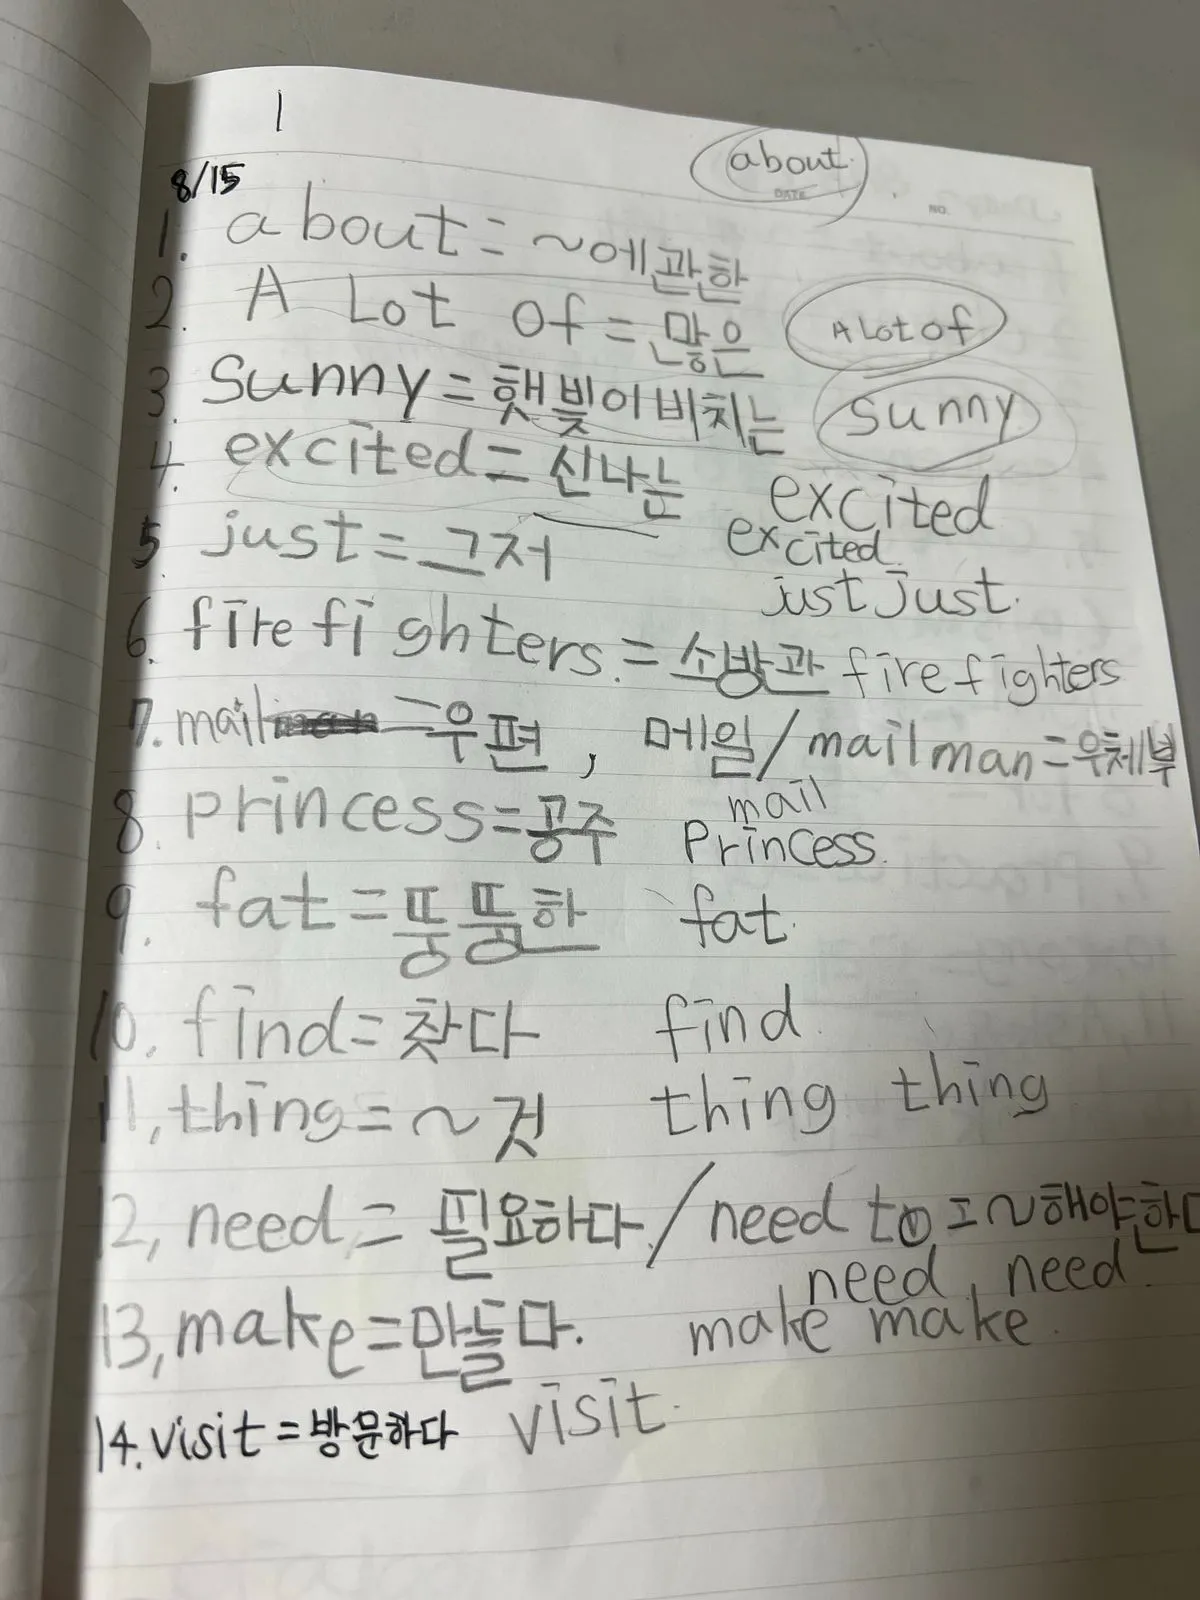 1
8/15
about.
DATE
NO.
1. about = ~에관한
2. A Lot Of = 많은 A Lot of
3. Sunny =햇빛이비치는 Sunny
4. excited = 신나는 excited
excited
5 just = 그저 just just.
6. fire fighters. = 소방관 fire fighters
7. mail = 우편, 메일 / mail man = 우체부
mail
8. princess = 공주 Princess.
9. fat = 뚱뚱한 fat.
10. find = 찾다 find.
11, thing = ~것 thing thing
12, need = 필요하다. / need to = ~해야한다
need, need.
13, make = 만들다. make make.
14. visit = 방문하다 visit.